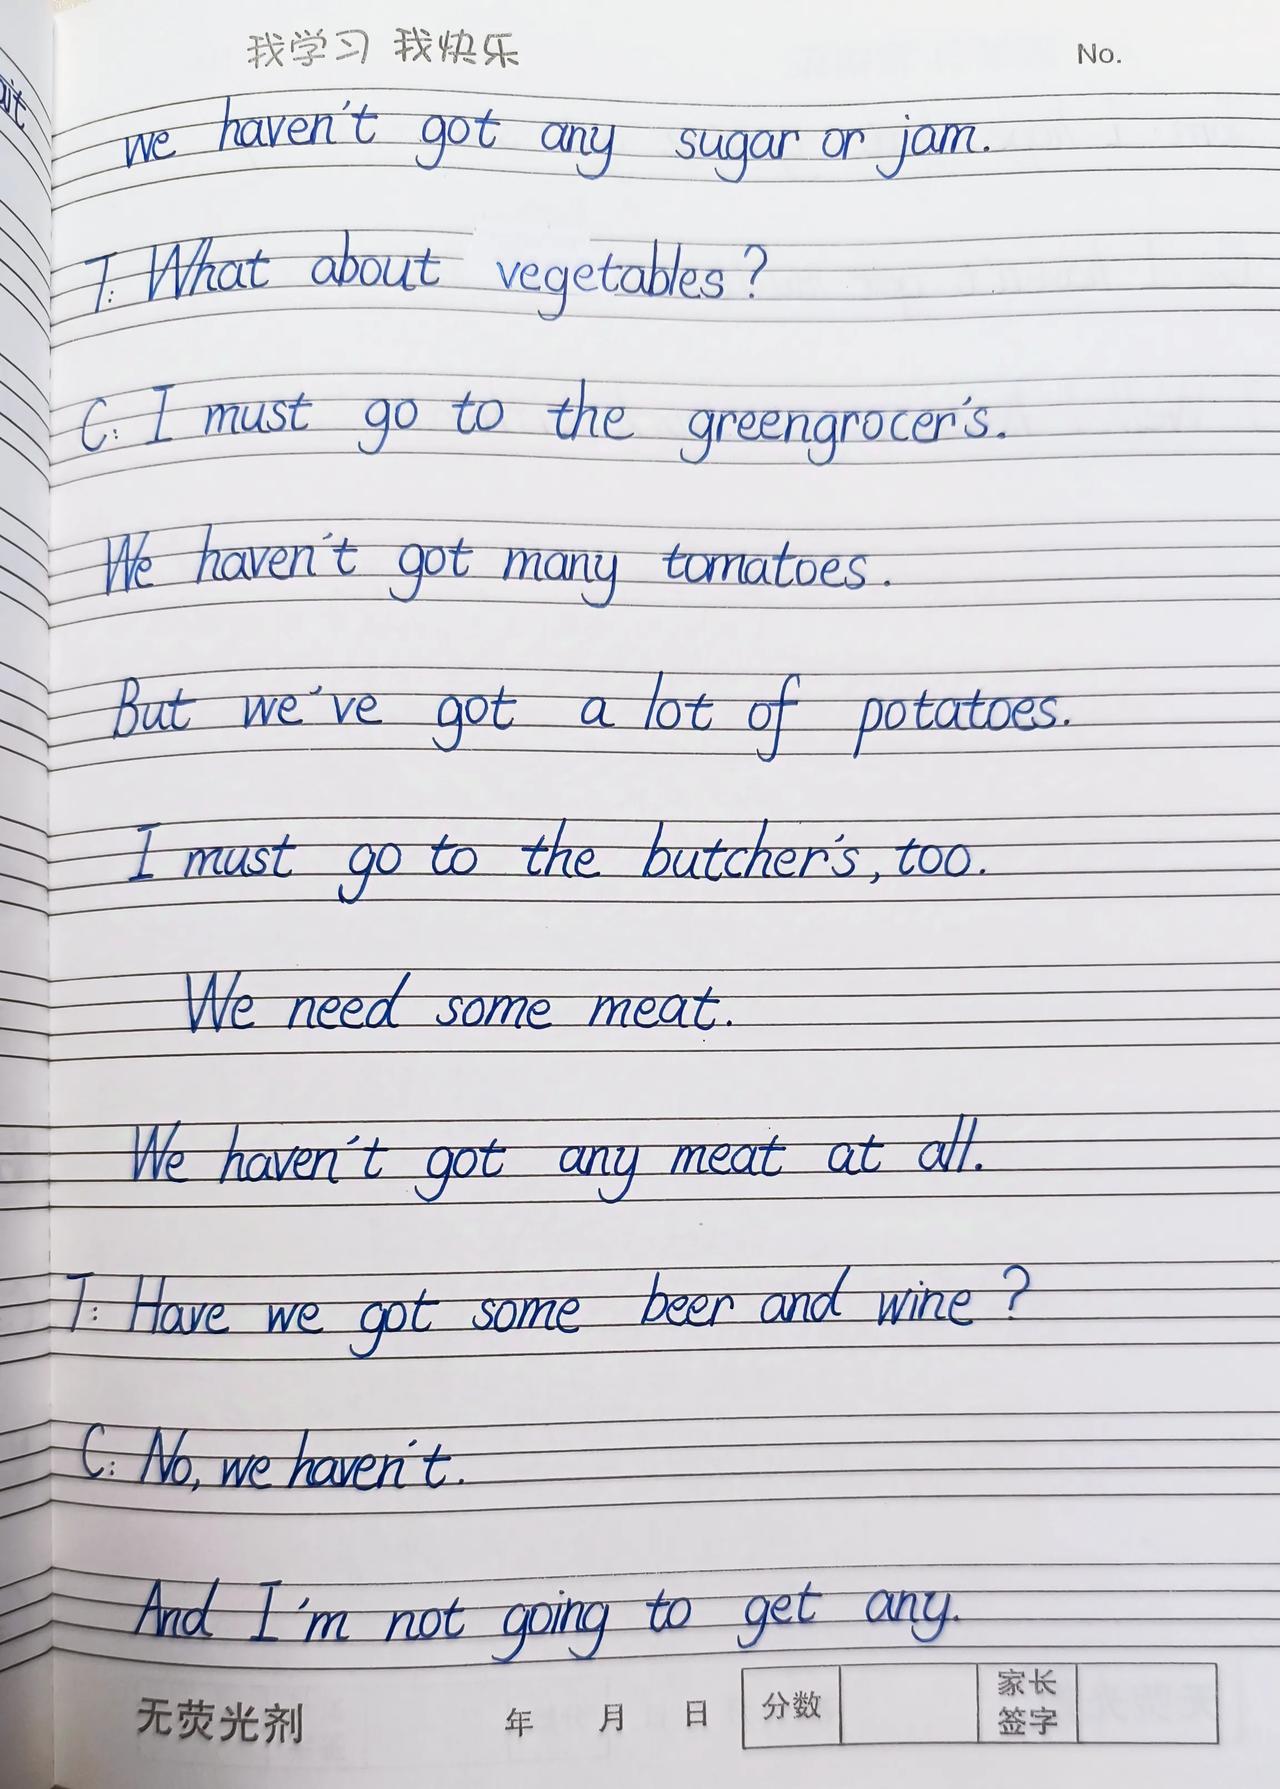 我学习 我快乐 No.
we haven't got any sugar or jam.
T: What about vegetables?
C: I must go to the greengrocer's.
We haven't got many tomatoes.
But we've got a lot of potatoes.
I must go to the butcher's, too.
We need some meat.
We haven't got any meat at all.
T: Have we got some beer and wine?
C: No, we haven't.
And I'm not going to get any.
无荧光剂 年 月 日 分数 家长签字